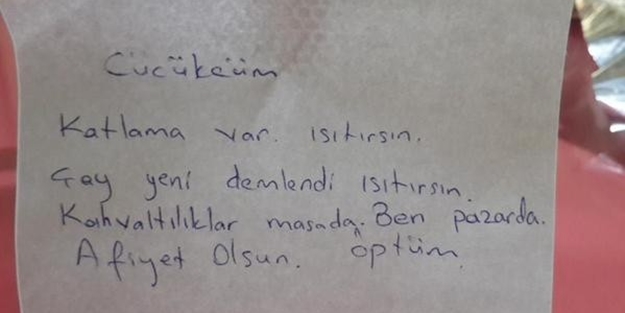 Cücükcüm
Katlama var. ısıtırsın.
Çay yeni demlendi ısıtırsın.
Kahvaltılıklar masada. Ben pazarda.
Afiyet Olsun. öptüm.